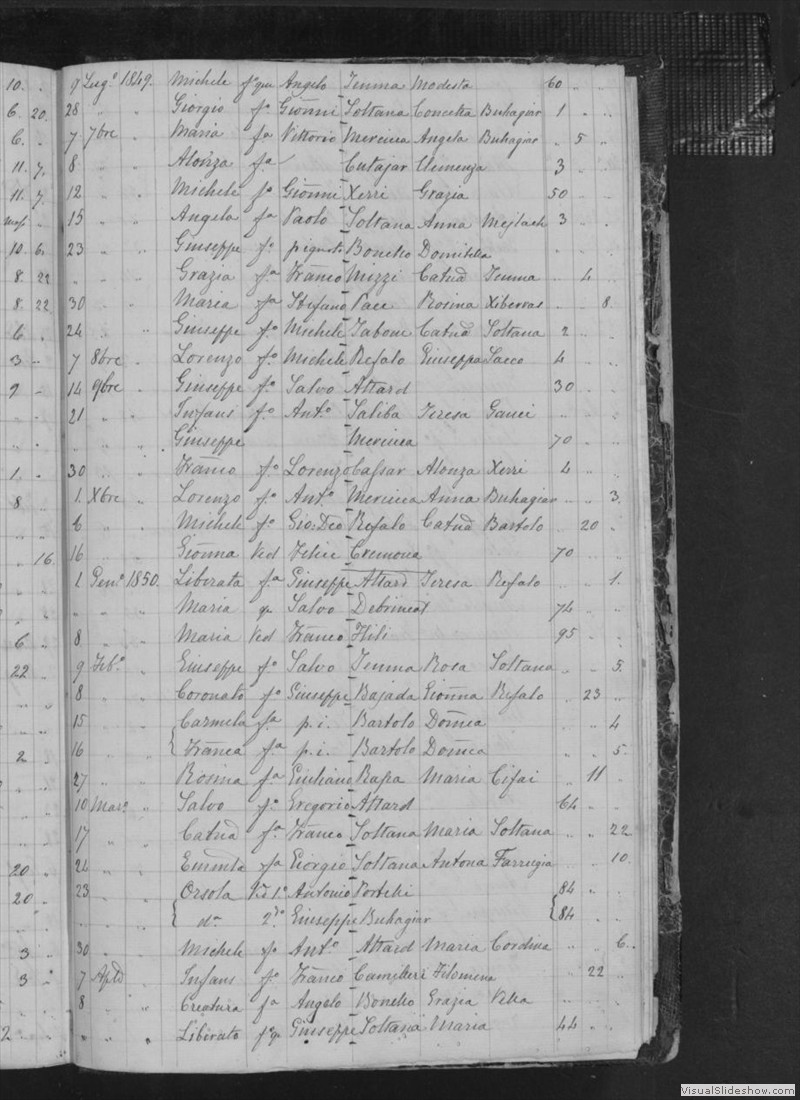 10. . 9 Lug.o 1849. Michele f.o qm Angelo Tumma Modesta 60 " "
6. 20. 28 " " Giorgio f.o Giōnni Soltana Concetta Buhagiar 1 " "
6. . 7 7bre " Maria f.a Vittorio Mercieca Angela Buhagiar " 5 "
11. 7. 8 " " Aloisza f.a Cutajar Clemenza 3
11. 7. 12 " " Michele f.o Giōnni Xerri Grazia 50
" 15 " " Angela f.a Paolo Soltana Anna Mejlach 3
10. 6. 23 " " Giuseppe f.o Bonello Domitilla
8. 22 " " " Grazia f.a Franco Mizzi Catnā Tumma " 4 "
8. 22 30 " " Maria f.a Stefano Pace Rosina Xiberras " " 8.
6. " 24 " " Giuseppe f.o Michele Tabone Catnā Soltana 2 " "
3 " 7 8bre " Lorenzo f.o Michele Refalo Giuseppa Sacco 4
2 " 14 9bre " Giuseppe f.o Salvo Attard 30 " "
21 " " Infans f.o Ant.o Saliba Teresa Gauci " " "
" " " Giuseppe Mercieca 70
1. " 30 " " Franco f.o Lorenzo Cassar Alonza Xerri 4
8 " 1. Xbre " Lorenzo f.o Ant.o Mercieca Anna Buhagiar " " 3.
" 6 " " Michele f.o Gio: Deo Refalo Catnā Bartolo " 20 "
. 16. 16 " " Giōnna Ved Felice Cremona 70 " "
1 Gen.o 1850. Liberata f.a Giuseppe Attard Teresa Refalo " " 1.
" " " Maria qm Salvo Debrincat 74 " "
6 " 8 " " Maria Ved Franco Hili 95 " "
22 " 9 Feb.o " Giuseppe f.o Salvo Tumma Rosa Soltana " " 5.
8 " " Coronato f.o Giuseppe Bajada Giōnna Refalo " 23 "
15 " " Carmela f.a p.i. Bartolo Domca " " 4
2 " 16 " " Franca f.a p.i. Bartolo Domca " " 5.
27 " " Rosina f.a Giuliano Rapa Maria Cifai " 11 "
10 Mar.o " Salvo f.o Gregorio Attard 64 " "
17 " " Catnā f.a Franco Soltana Maria Soltana " " 22
20 " 24 " " f.a Giorgio Soltana Antona Farrugia " " 10.
20 " 23 " " Orsola Vd 1.o Antonio Portelli 84 " "
" " " d.a 2.do Giuseppe Buhagiar 84 " "
3 " 30 " " Michele f.o Ant.o Attard Maria Cordina " " 6.
3 " 7 " Infans f.o Franco Camilleri Filomena " 22 "
8 " " Creatura f.a Angelo Bonello Grazia Vella " " "
2 " " " " Liberato f.o qm Giuseppe Soltana Maria 44 " "
VisualSlideshow.com